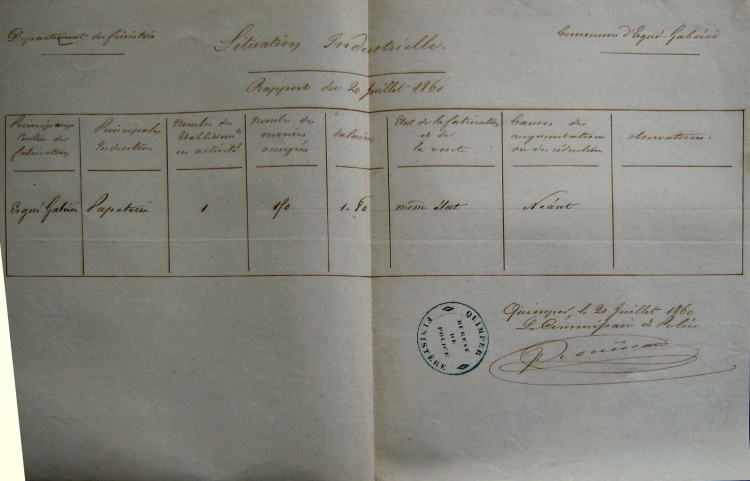 Département du finistère
Situation Industrielle.
Commune d'Ergué-Gabéric
Rapport du 20 Juillet 1860
Principaux Centres de fabrication
Principales Industries
Nombre des Etablissemts en activité
Nombre des ouvriers occupés
Salaires
Etat de la fabrication et de la vente
Causes des augmentations ou des réduction
observations.
Ergué Gabéric
Papeterie
1
150
1.80
même état
Néant
Quimper, le 20 Juillet 1860
Le Commissaire de Police
QUIMPER
FINISTÈRE
BUREAU
DE
POLICE